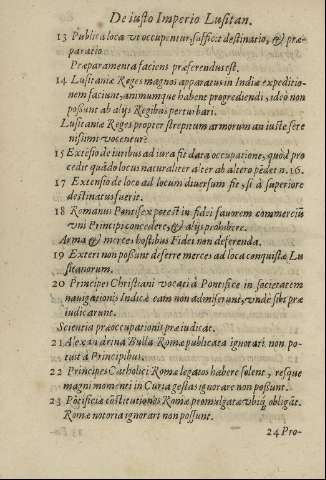 De iusto Imperio Lusitan.
13 Publica loca vt occupentur, sufficit destinatio, & præ-
paratio.
Præparamenta faciens præferendus est.
14 Lusitaniæ Reges magnos apparatus in Indiæ expeditio-
nem faciunt, animumque habent progrediendi, ideò non
possunt ab alijs Regibus perturbari.
Lusitaniæ Reges propter strepitum armorum an iuste sere
nissimi vocentur?
15 Extēsio de iuribus ad iura fit data occupatione, quòd pro
cedit quādo locus naturaliter alter ab altero pēdet n. 16.
17 Extensio de loco ad locum diuersum fit, si à superiore
destinatus fuerit.
18 Romanus Pontifex potest in fidei fauorem commerciū
vni Principi concedere, & alijs prohibere.
Arma & merces hostibus Fidei non deferenda.
19 Exteri non possunt deferre merces ad loca conquistæ Lu
sitanorum.
20 Principes Christiani vocati à Pontifice in societatem
nauigationis Indicæ eam non admiserunt, vnde sibi præ
iudicarunt.
Scientia præoccupationis præiudicat.
21 Alexandrina Bulla Romæ publicata ignorari non po-
tuit à Principibus.
22 Principes Catholici Romæ legatos habere solent, resque
magni momenti in Curia gestas ignorare non possunt.
23 Pōtificiæ cōstitutiones Romæ promulgatæ vbiq; obligāt.
Romæ notoria ignorari non possunt.
24 Pro-